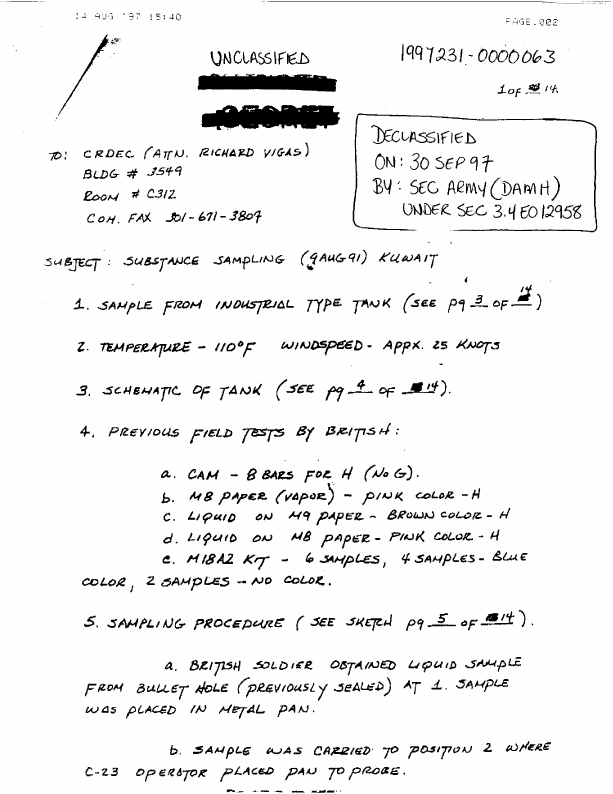 14 AUG '97 15:40
PAGE.002
UNCLASSIFIED
1997231-0000063
1 of 14
DECLASSIFIED
ON: 30 SEP 97
BY: SEC ARMY (DAMH)
UNDER SEC 3.4 EO 12958
TO: CRDEC (ATTN. RICHARD VIGAS)
BLDG # 3549
ROOM # C312
COM. FAX 301-671-3809
SUBJECT: SUBSTANCE SAMPLING (9AUG91) KUWAIT
1. SAMPLE FROM INDUSTRIAL TYPE TANK (SEE pg 3 OF 14)
2. TEMPERATURE - 110°F WINDSPEED - APPX. 25 KNOTS
3. SCHEMATIC OF TANK (SEE pg 4 OF 14).
4. PREVIOUS FIELD TESTS BY BRITISH:
a. CAM - 8 BARS FOR H (NO G).
b. M8 PAPER (VAPOR) - PINK COLOR - H
c. LIQUID ON M9 PAPER - BROWN COLOR - H
d. LIQUID ON M8 PAPER - PINK COLOR - H
e. M18A2 KIT - 6 SAMPLES, 4 SAMPLES - BLUE
COLOR, 2 SAMPLES - NO COLOR.
5. SAMPLING PROCEDURE (SEE SKETCH pg 5 OF 14).
a. BRITISH SOLDIER OBTAINED LIQUID SAMPLE
FROM BULLET HOLE (PREVIOUSLY SEALED) AT 1. SAMPLE
WAS PLACED IN METAL PAN.
b. SAMPLE WAS CARRIED TO POSITION 2 WHERE
C-23 OPERATOR PLACED PAN TO PROBE.